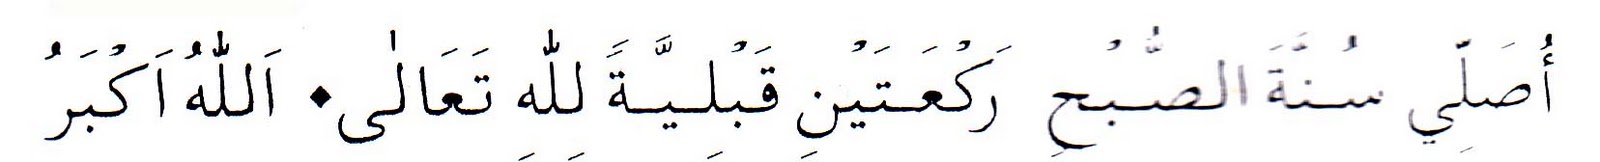 أُصَلِّي سُنَّةَ الصُّبْحِ رَكْعَتَيْنِ قَبْلِيَّةً لِلّٰهِ تَعَالٰى۰ اَللّٰهُ اَكْبَرُ